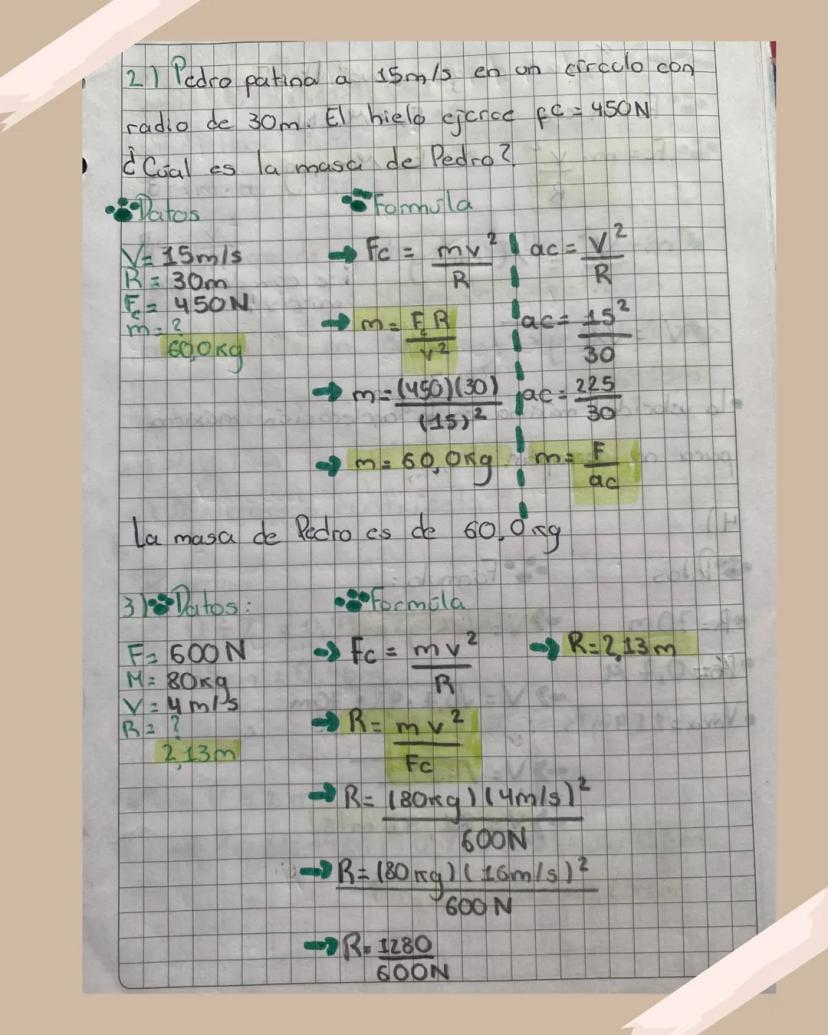 2) Pedro patina a 15m/s en un círculo con
radio de 30m. El hielo ejerce fc = 450N
¿Cúal es la masa de Pedro?
Datos
V= 15m/s
R= 30m
Fc= 450N
m= ?
60,0kg
Formula
Fc = mv²/R
m= FcR/v²
m= (450)(30)/(15)²
m= 60,0kg
ac= V²/R
ac= 15²/30
ac= 225/30
m= F/ac
La masa de Pedro es de 60,0kg
3) Datos:
F= 600N
M= 80kg
V= 4m/s
R= ?
2,13m
Formula
Fc = mv²/R
R= mv²/Fc
R= (80kg)(4m/s)²/600N
R= (80kg)(16m/s)²/600N
R= 1280/600N
R= 2,13m